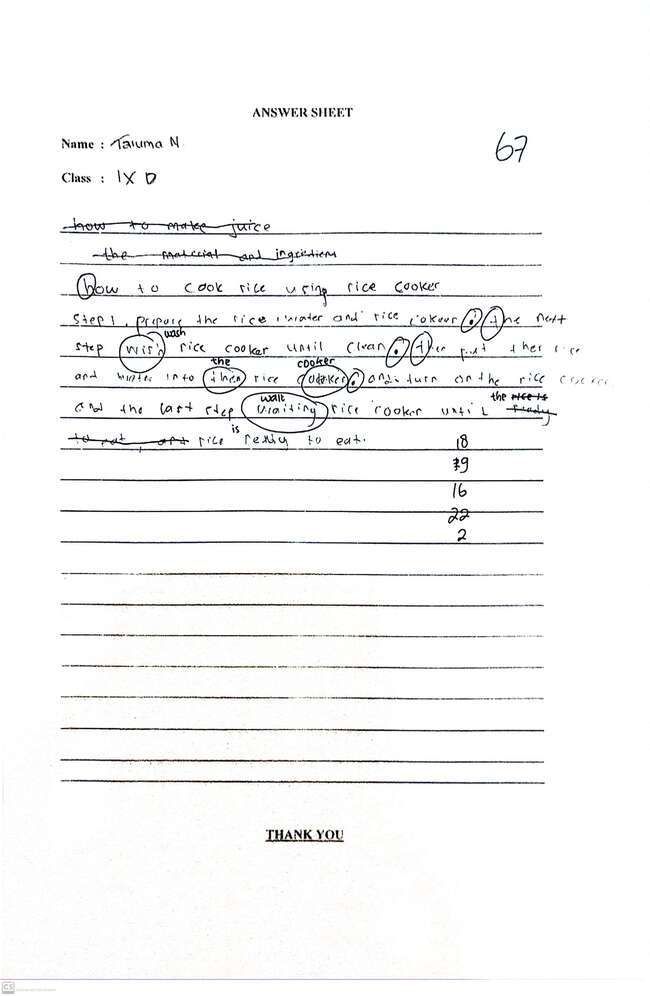 ANSWER SHEET
Name : Taluma N
67
Class : IX D
how to make juice
the material and ingredients
how to cook rice using rice cooker
Step 1, prepare the rice water and rice cokeer . the next
wash
step wish rice cooker until clean . then put ther rice
the cooker
and water into then rice . and turn on the rice cooker
wait the rice is
and the last step waiting rice cooker until ready
is
to eat, rice ready to eat.
18
19
16
22
2
THANK YOU
CS